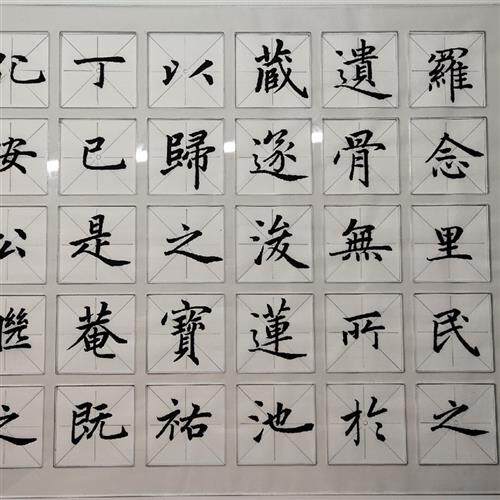 羅念里民之
遺骨無所於
蔵遂浚蓮池
以歸之寶祐
丁已是菴既
安公
之